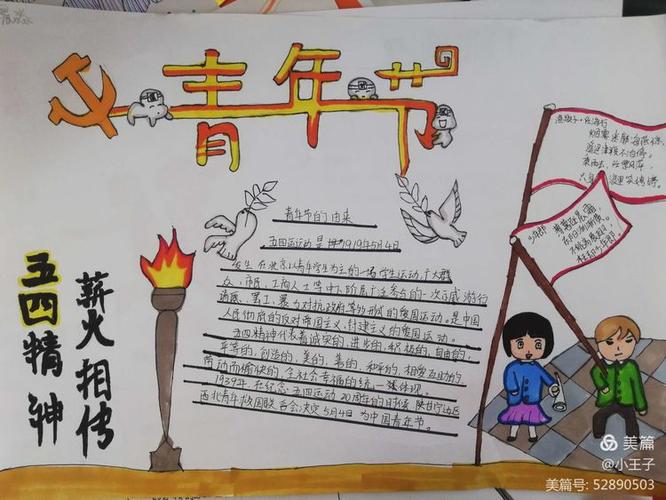 青年节
青年节的由来
五四运动是 1919年5月4日
发生在北京以青年学生为主的一场学生运动,广大群
众、市民、工商人士等中下阶层广泛参与的一次示威游行
请愿、罢工、暴力对抗政府等多形式的爱国运动。是中国
人民彻底的反对帝国主义、封建主义的爱国运动。
五四精神代表着诚实的、进步的、积极的、自由的、
平等的、创造的、美的、善的、和平的、相爱互助的
劳动而愉快的,全社会幸福的统一体现。
1939年,在纪念五四运动20周年的日子里,陕甘宁边区
西北青年救国联合会决定5月4日为中国青年节。
五四精神
薪火相传
美篇
@小王子
美篇号: 52890503